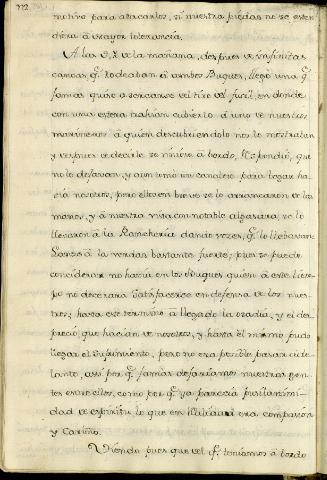 motivo para atacarlos, si nuestra piedad no se esten
diera á mayor tolerancia.
A las 9, ½ de la mañana, despues de infinitas
canoas q.e rodeaban á ambos Buques, llegó una q.e
jamas quiso acercarse del tiro del fusil, en donde
con una estera trahian cubierto á uno de nuestros
marineros á quien descubriendolo nos lo mostraban
y despues de decirle se viniese á bordo, respondió, que
no lo dejavan, y aun tomó un canalete para bogar ha
cia nosotros, pero ellos en breve se lo arrancaron de las
manos, y á nuestra vista con notable algazara, se lo
llevaron á la Rancheria dando vozes, q.e lo llebavan
á la verdad bastante fuerte; pues se puede
considerar no havia en los Buques quien á este tiem
po no deceara satisfacerse en defensa de los nues
tros; hasta este termino á llegado la osadia, y el des
precio, que hacian de nosotros, y hasta el mismo pudo
llegar el sufrimiento, pero no era posible pasar ade
lante, assi por q.e jamas dejariamos nuestras gen
tes entre ellos, como por q.e ya parecia pusilanimi
dad de espiritu lo que en realidad era compasion
y cariño.
Viendo pues que del q.e teniamos á bordo